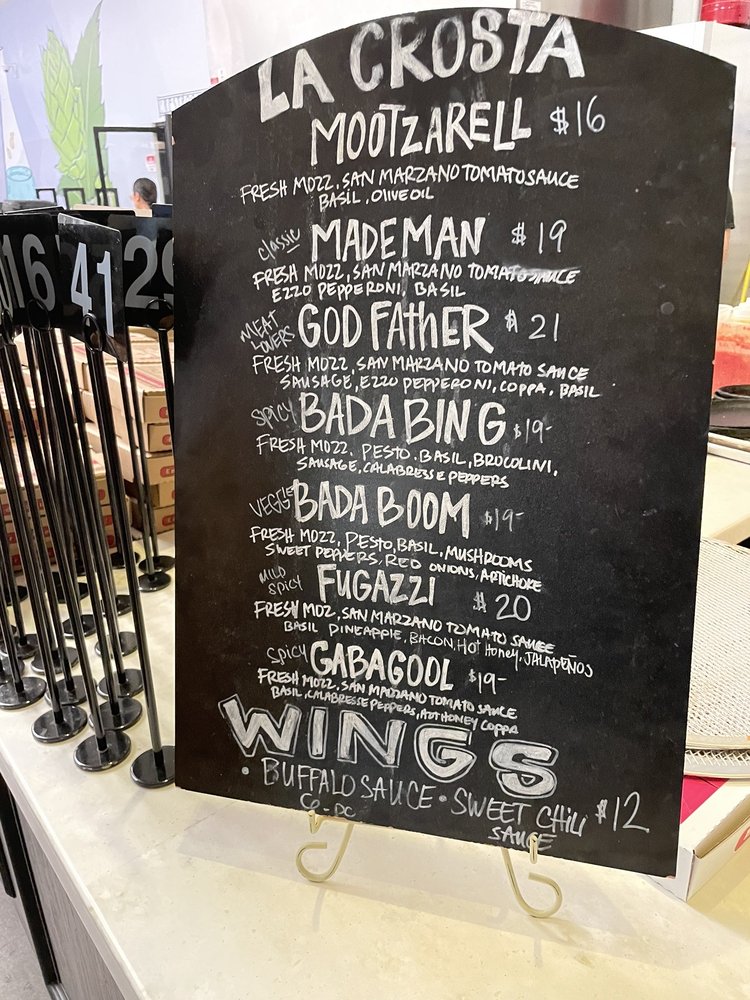 LA CROSTA
MOOTZARELL $16
FRESH MOZZ, SAN MARZANO TOMATO SAUCE
BASIL, OLIVE OIL
classic MADEMAN $19
FRESH MOZZ, SAN MARZANO TOMATO SAUCE
EZZO PEPPERONI, BASIL
MEAT LOVERS GOD FATHER $21
FRESH MOZZ, SAN MARZANO TOMATO SAUCE
SAUSAGE, EZZO PEPPERONI, COPPA, BASIL
SPICY BADA BING $19-
FRESH MOZZ. PESTO. BASIL, BROCOLINI,
SAUSAGE, CALABRESSE PEPPERS
VEGGIE BADA BOOM $19-
FRESH MOZZ, PESTO, BASIL, MUSHROOMS
SWEET PEPPERS, RED ONIONS, ARTICHOKE
MILD SPICY FUGAZZI $20
FRESH MOZ, SAN MARZANO TOMATO SAUCE
BASIL PINEAPPLE, BACON, HOT HONEY, JALAPEÑOS
SPICY GABAGOOL $19-
FRESH MOZZ, SAN MARZANO TOMATO SAUCE
BASIL, CALABRESSE PEPPERS, HOT HONEY COPPA
WINGS
• BUFFALO SAUCE • SWEET CHILI $12
SAUCE
16
41
29